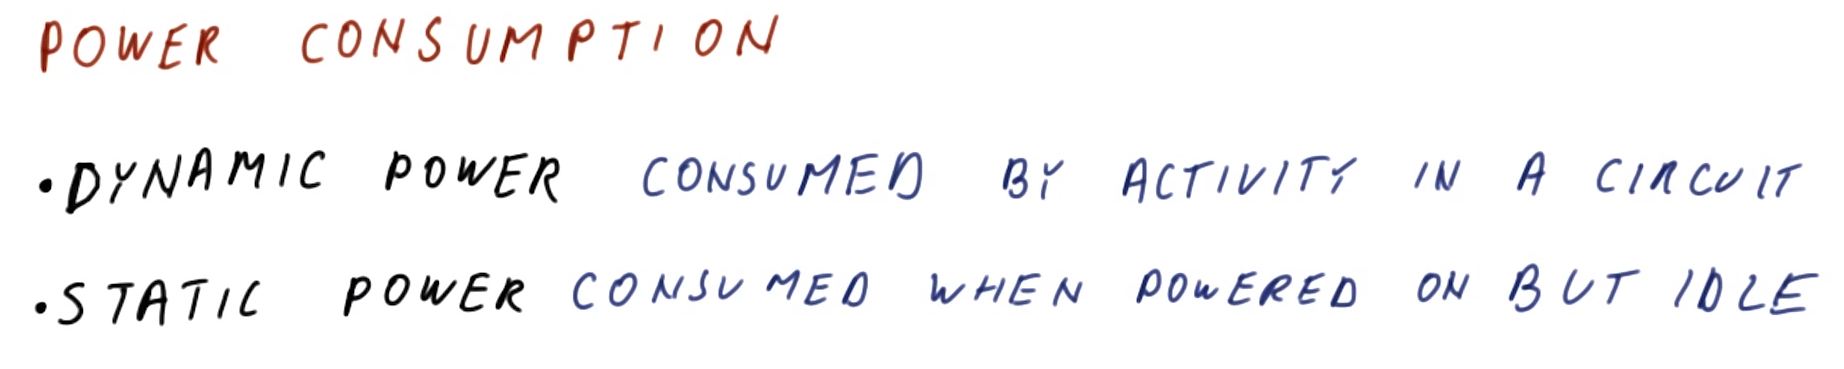 POWER CONSUMPTION
•DYNAMIC POWER CONSUMED BY ACTIVITY IN A CIRCUIT
•STATIC POWER CONSUMED WHEN POWERED ON BUT IDLE